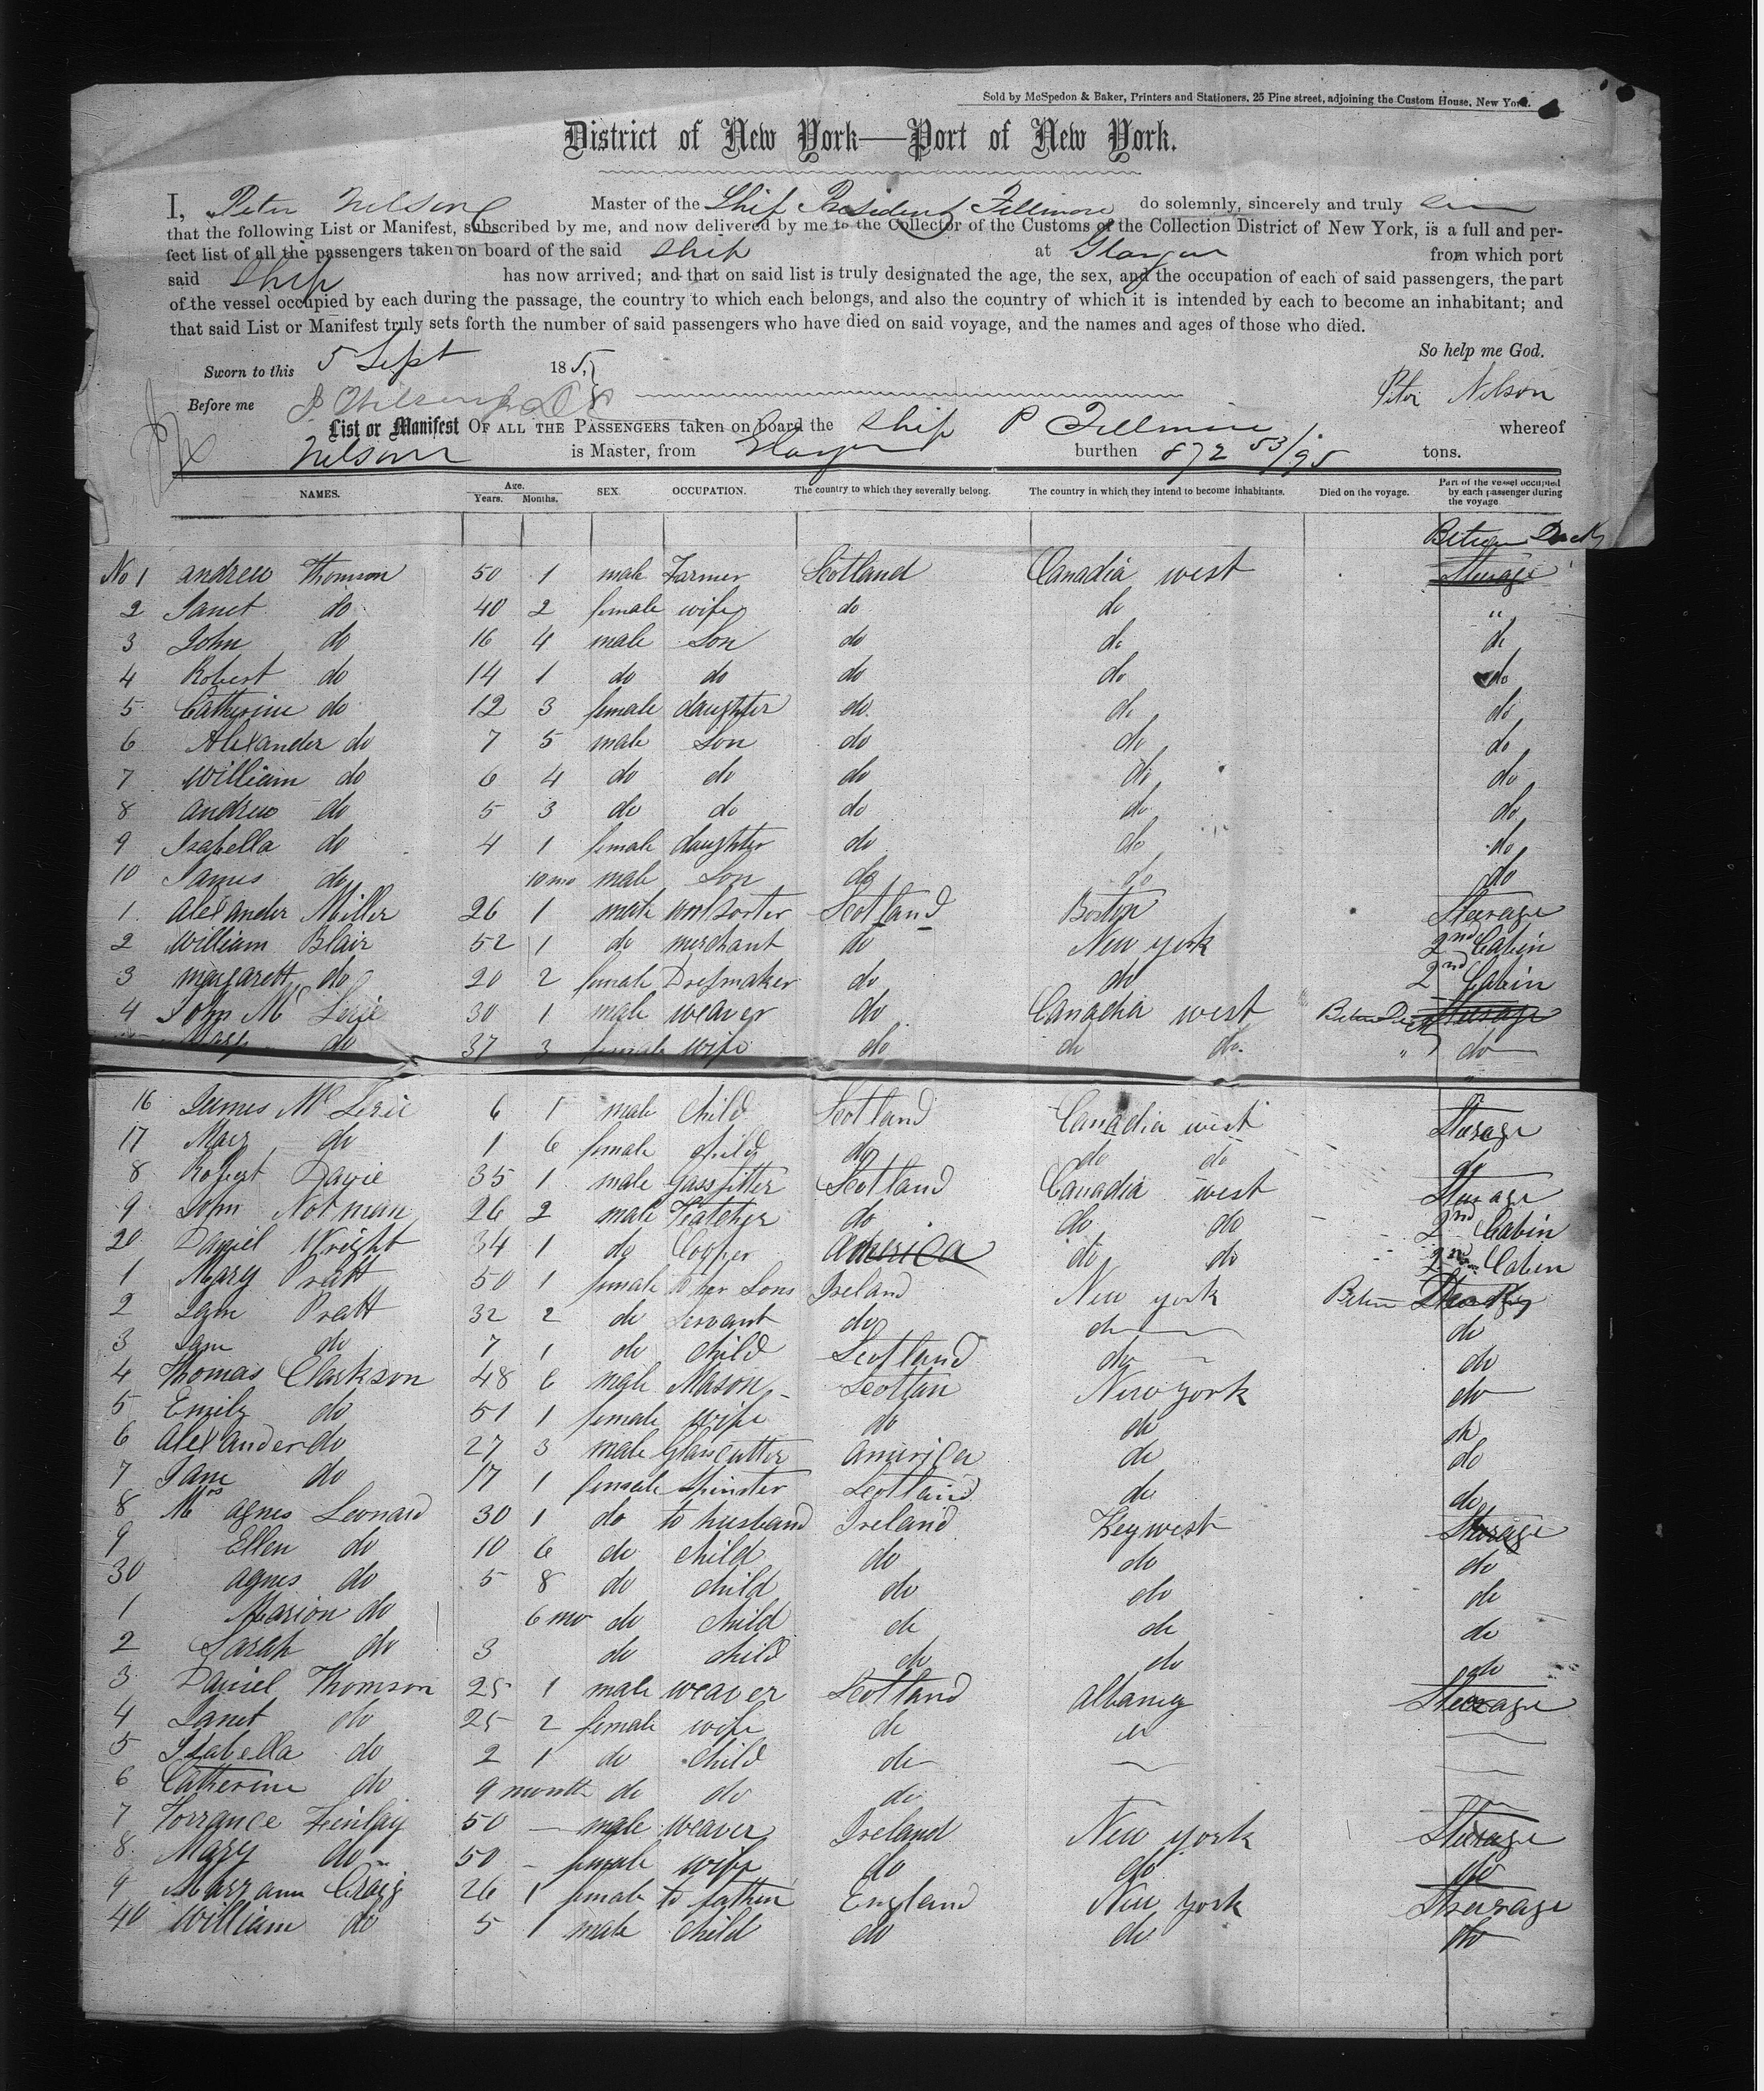 Sold by McSpedon & Baker, Printers and Stationers, 25 Pine street, adjoining the Custom House, New York.
District of New York—Port of New York.
I, Peter Nelson Master of the Ship President Fillmore do solemnly, sincerely and truly
that the following List or Manifest, subscribed by me, and now delivered by me to the Collector of the Customs of the Collection District of New York, is a full and per-
fect list of all the passengers taken on board of the said Ship at Glasgow from which port
said Ship has now arrived; and that on said list is truly designated the age, the sex, and the occupation of each of said passengers, the part
of the vessel occupied by each during the passage, the country to which each belongs, and also the country of which it is intended by each to become an inhabitant; and
that said List or Manifest truly sets forth the number of said passengers who have died on said voyage, and the names and ages of those who died.
So help me God.
Sworn to this 5 Sept 185
Peter Nelson
Before me
List or Manifest OF ALL THE PASSENGERS taken on board the Ship P Fillmore whereof
Nelson is Master, from Glasgow burthen 872 53/95 tons.
NAMES. Age. Years. Months. SEX. OCCUPATION. The country to which they severally belong. The country in which they intend to become inhabitants. Died on the voyage. Part of the vessel occupied by each passenger during the voyage
Between Deck
No 1 Andrew Thomson 50 1 male Farmer Scotland Canadia west Steerage
2 Janet do 40 2 female wife do do "
3 John do 16 4 male Son do do do
4 Robert do 14 1 do do do do do
5 Catherine do 12 3 female daughter do do do
6 Alexander do 7 5 male Son do do do
7 William do 6 4 do do do do do
8 Andrew do 5 3 do do do do do
9 Isabella do 4 1 female daughter do do do
10 James do 10 mo male Son do do do
1 Alexander Miller 26 1 male Scotland Boston Steerage
2 William Blair 52 1 do merchant do New york 2nd Cabin
3 Margarett do 20 2 female Dressmaker do do 2nd Cabin
4 John Mc Lerie 30 1 male weaver do Canadia west Between Deck Steerage
Mary do 37 3 female wife do do do " do
16 James Mc Lerie 6 1 male child Scotland Canadia west Sterage
17 Mary do 1 6 female child do do do do
8 Robert Davie 35 1 male Gassfitter Scotland Canadia west Sterage
9 John Notman 26 2 male Teatcher do do do 2nd Cabin
20 Daniel Wright 34 1 do Cooper America do do 2nd Cabin
1 Mary Pratt 50 1 female to her Sons Ireland New york Between Decks
2 Jane Pratt 32 2 do Servant do do do
3 Jane do 7 1 do child Scotland do do
4 Thomas Clarkson 48 6 male Mason Scotlan New york do
5 Emily do 51 1 female wife do do do
6 Alexander do 27 3 male Glasscutter America do do
7 Jane do 17 1 female Spinster Scotland do do
8 Mrs Agnes Leonard 30 1 do to husband Ireland Keywest Sterage
9 Ellen do 10 6 do child do do do
30 Agnes do 5 8 do child do do do
1 Marion do 6 mo do child do do do
2 Sarah do 3 do child do do do
3 Daniel Thomson 25 1 male weaver Scotland Albaney Steerage
4 Janet do 25 2 female wife do do
5 Isabella do 2 1 do child do
6 Catherine do 9 month do do do
7 Torrance Finlay 50 — male weaver Ireland New york Sterage
8 Mary do 50 - female wife do do do
9 Mary ann Craig 26 1 female to father England New york Steerage
40 William do 5 1 male child do do do